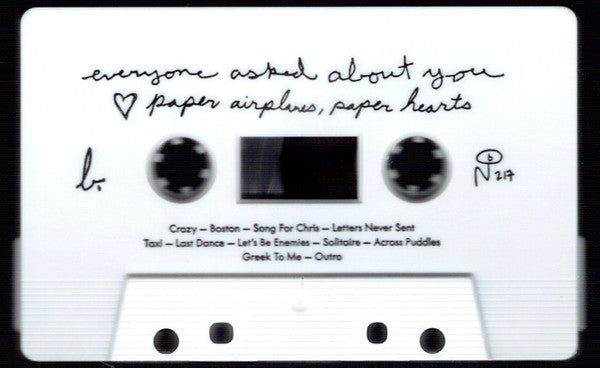 everyone asked about you
♡ paper airplanes, paper hearts
b.
b
N 217
Crazy – Boston – Song For Chris – Letters Never Sent
Taxi – Last Dance – Let's Be Enemies – Solitaire – Across Puddles
Greek To Me – Outro